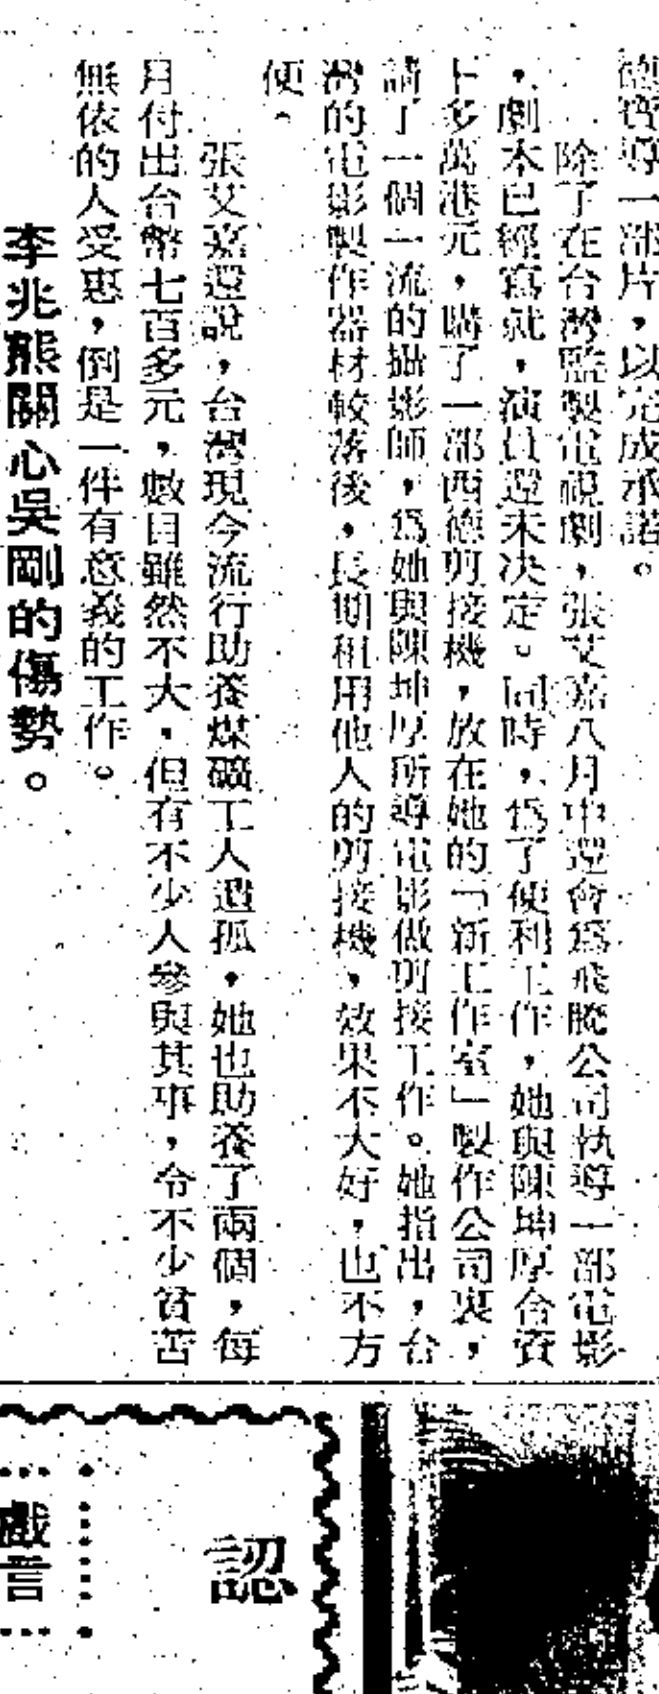 德寶導一部片，以完成承諾。
除了在台灣監製電視劇，張艾嘉八月中還會爲飛騰公司執導一部電影
，劇本已經寫就，演員還未決定。同時，爲了便利工作，她與陳坤厚合資
十多萬港元，購了一部西德剪接機，放在她的「新工作室」製作公司裏，
請了一個一流的攝影師，爲她與陳坤厚所導電影做剪接工作。她指出，台
灣的電影製作器材較落後，長期租用他人的剪接機，效果不大好，也不方
便。
張艾嘉還說，台灣現今流行助養煤礦工人遺孤，她也助養了兩個，每
月付出台幣七百多元，數目雖然不大，但有不少人參與其事，令不少貧苦
無依的人受惠，倒是一件有意義的工作。
李兆熊關心吳剛的傷勢。
認
戲言